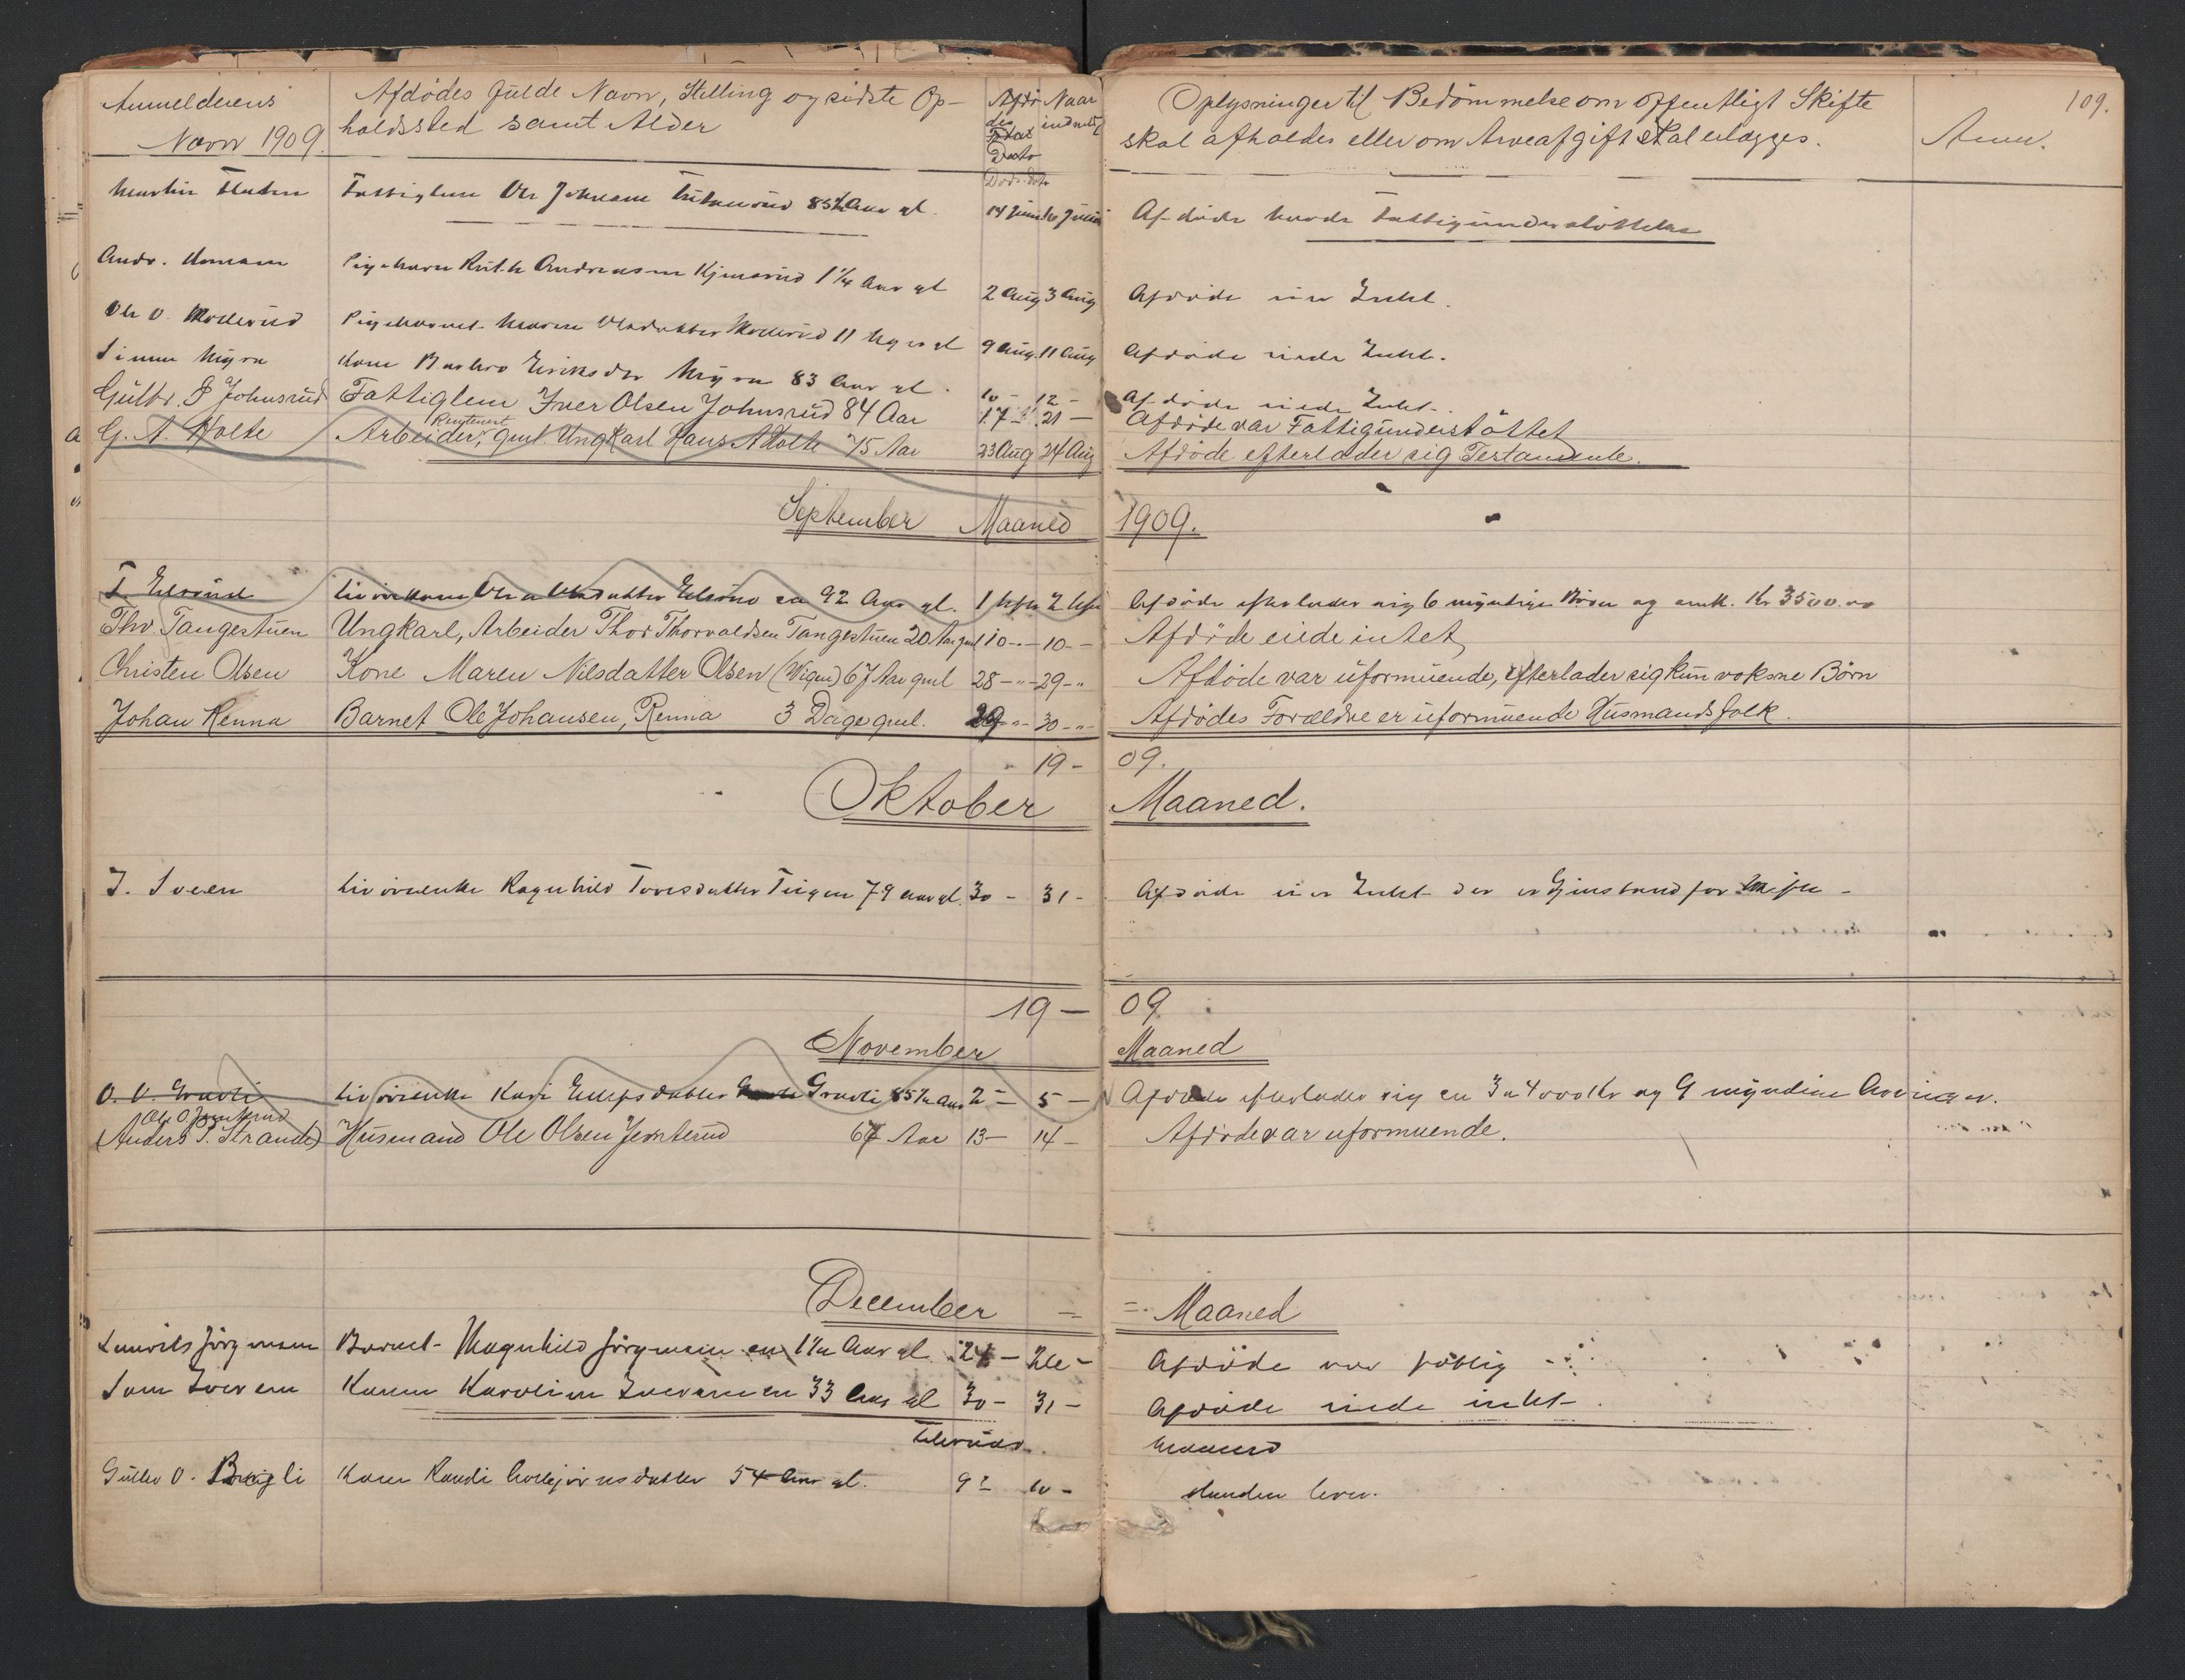 109.
Anmelderens Navn 1909. Afdødes fulde Navn, Stilling og sidste Op-
holdssted samt Alder Dato Naar indmeldt Oplysninger til Bedømmelse om offentligt Skifte
skal afholdes eller om Arveafgift skal erlægges. Anm.
Martin Fladen Fattiglem Ole Johnsen 85½ Aar gl. 14 Juni 16 Juni Afdøde havde Fattigunderstøttelse
Andr. Hansen Pigebarn Ruth Andreasen Kjensrud 1¼ Aar gl 2 Aug 3 Aug Afdøde eier Intet.
Ole O. Moderud Pigebarnet Maren Olsdatter Moderud 11 gl 9 Aug. 11 Aug Afdøde eiede Intet.
Simen Myra Kone Barbro Eriksdtr Myra 83 Aar gl. 10 - 12 - Afdøde eiede Intet.
Gulbr. I Johnsrud Fattiglem Iver Olsen Johnsrud 84 Aar 17 - 21 — Afdøde var Fattigunderstøttet
G. A. Holte Arbeider, gml. Ungkarl Hans A Holte 75 Aar 23 Aug 24 Aug Afdøde efterlader sig Testamente.
September Maaned 1909.
T. Elsrud Livørekone Olea Olsdatter Elsrud ca 92 Aar gl. 1 Sptr 2 Sptr Afdøde efterlader sig 6 myndige Børn og omtr. Kr 3500.00
Thv. Tangestuen Ungkarl, Arbeider Thor Thorvaldsen Tangestuen 20 Aar gml 10 -"- 10 - Afdøde eiede intet
Christen Olsen Kone Maren Nilsdatter Olsen (Wigen) 67 Aar gml 28 -"- 29 -" Afdøde var uformuende, efterlader sig kun voksne Børn
Johan Renna Barnet Ole Johansen, Renna 3 Dage gml. 29 -"- 30 -"- Afdødes Forældre er uformuende Husmandsfolk.
19 - 09.
Oktober Maaned.
J. Sveen Livørenke Ragnhild Toresdatter 79 Aar gl. 30 - 31 - Afdøde eier Intet der er Gjenstand for Skifte -
19 — 09
November Maaned
O. O. Gravli Livørenke Kari Gravli 85½ Aar 2 - 5 — Afdøde efterlader sig en 3 a 4000 Kr og 9 myndige Arvinger.
Ole O Jemterud
(Anders P. Strande) Husmand Ole Olsen Jemterud 67 Aar 13 — 14 - Afdøde var uformuende.
December - - Maaned
Laurits Jørgensen Barnet Magnhild Jørgensen en 1½ Aar gl. 24 — 26 - Afdøde var fattig
Sam Iversen Konen Karoline Iversen en 33 Aar gl 30 - 31 - Afdøde eiede intet.
Februar. Maaned
Gulbr O. Bergli Kone Randi Arnbjørnsdatter 54 Aar gl. 9 - 10 - Manden lever.